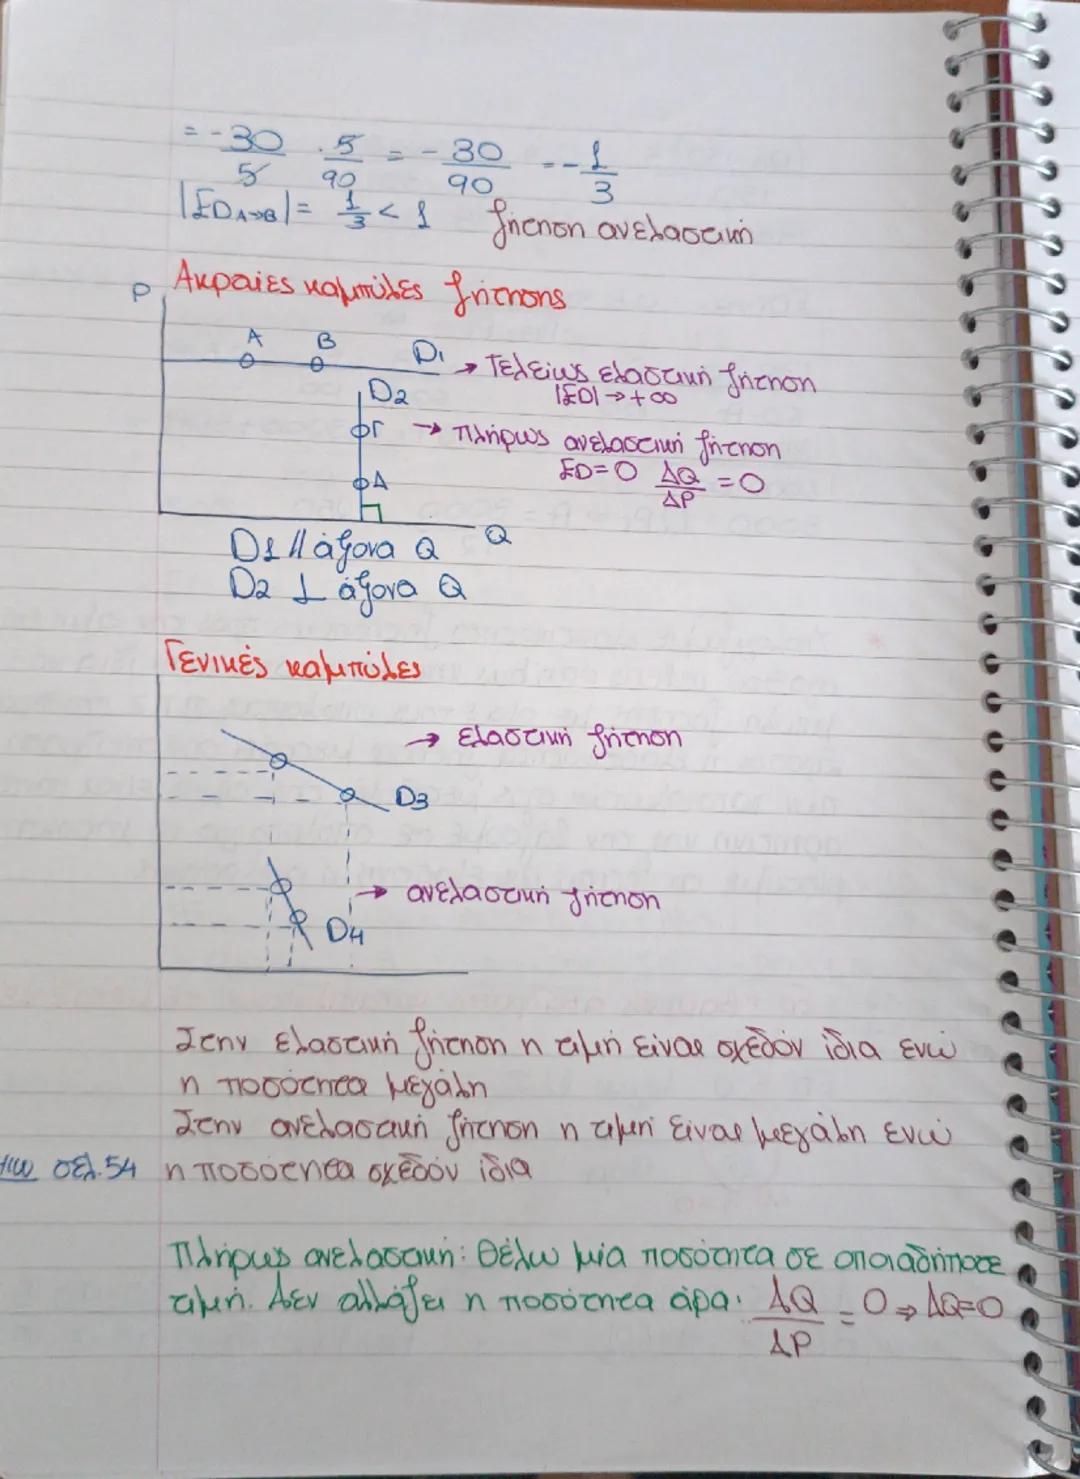 = -30/5 · 5/90 = -30/90 = -1/3
|ED A→B| = 1/3 < 1 ζήτηση ανελαστική
Ακραίες καμπύλες ζήτησης
P
A B D1 → Τελείως ελαστική ζήτηση
|ED| → +∞
D2
Γ → πλήρως ανελαστική ζήτηση
ED=0 ΔQ/ΔP = 0
Δ
Q
D1 // άξονα Q
D2 ⊥ άξονα Q
Γενικές καμπύλες
→ ελαστική ζήτηση
D3
→ ανελαστική ζήτηση
D4
Στην ελαστική ζήτηση η τιμή είναι σχεδόν ίδια ενώ
η ποσότητα μεγάλη
Στην ανελαστική ζήτηση η τιμή είναι μεγάλη ενώ
σελ. 54 η ποσότητα σχεδόν ίδια
Πλήρως ανελαστική: Θέλω μία ποσότητα σε οποιαδήποτε
τιμή. Δεν αλλάζει η ποσότητα άρα: ΔQ/ΔP = 0 ⇒ ΔQ=0